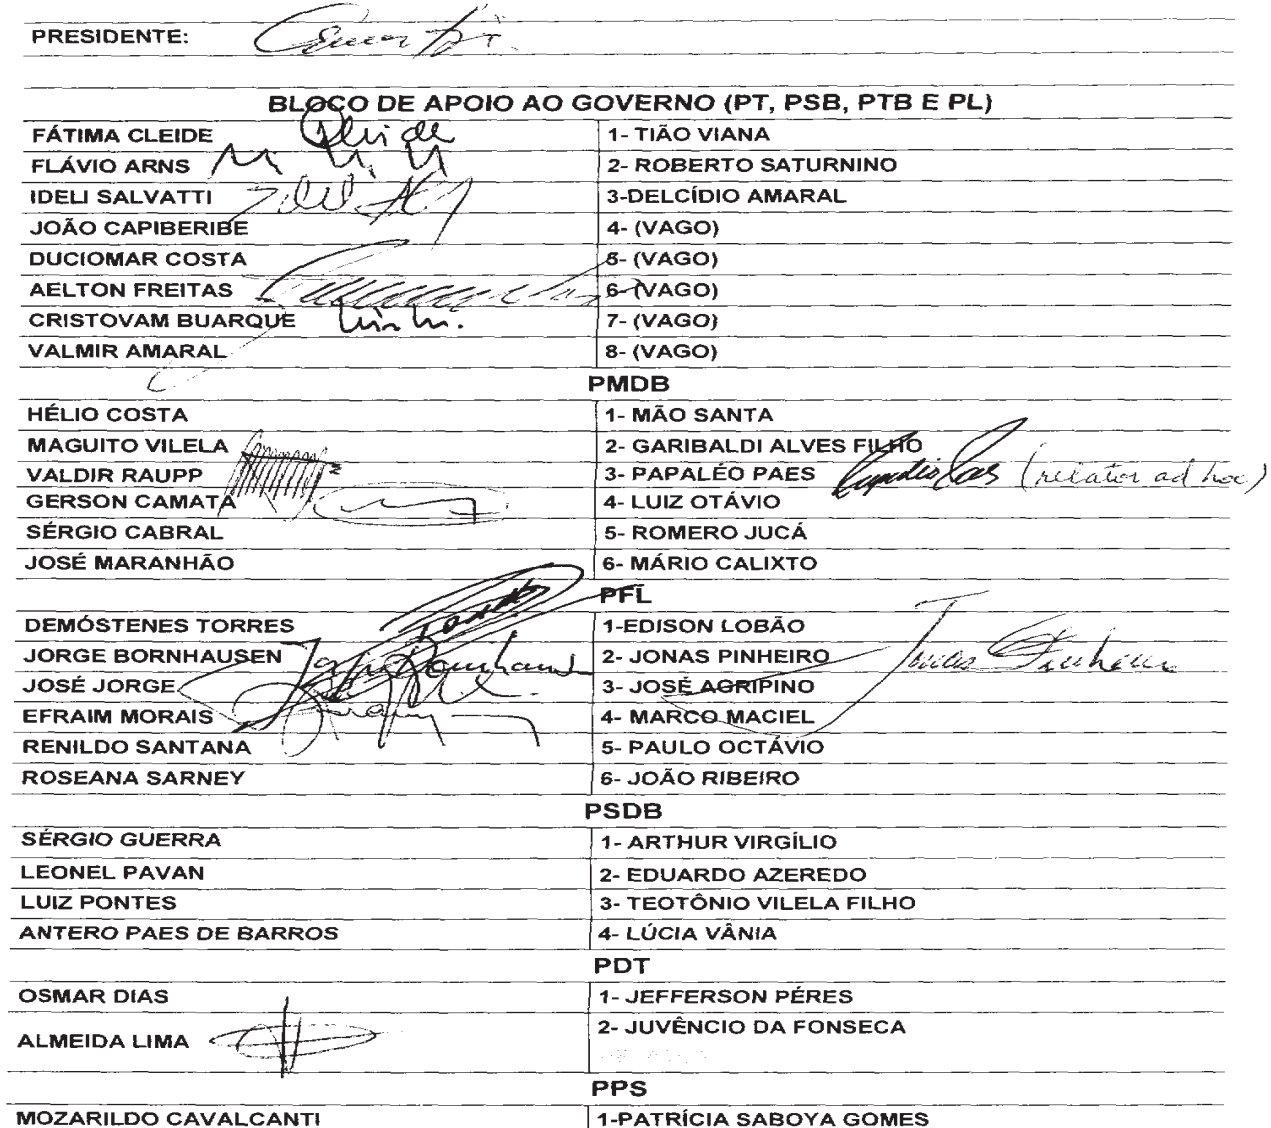 PRESIDENTE:
BLOCO DE APOIO AO GOVERNO (PT, PSB, PTB E PL)
FÁTIMA CLEIDE 1- TIÃO VIANA
FLÁVIO ARNS 2- ROBERTO SATURNINO
IDELI SALVATTI 3-DELCÍDIO AMARAL
JOÃO CAPIBERIBE 4- (VAGO)
DUCIOMAR COSTA 5- (VAGO)
AELTON FREITAS 6- (VAGO)
CRISTOVAM BUARQUE 7- (VAGO)
VALMIR AMARAL 8- (VAGO)
PMDB
HÉLIO COSTA 1- MÃO SANTA
MAGUITO VILELA 2- GARIBALDI ALVES FILHO
VALDIR RAUPP 3- PAPALÉO PAES (relator ad hoc)
GERSON CAMATA 4- LUIZ OTÁVIO
SÉRGIO CABRAL 5- ROMERO JUCÁ
JOSÉ MARANHÃO 6- MÁRIO CALIXTO
PFL
DEMÓSTENES TORRES 1-EDISON LOBÃO
JORGE BORNHAUSEN 2- JONAS PINHEIRO Jonas Pinheiro
JOSÉ JORGE 3- JOSÉ AGRIPINO
EFRAIM MORAIS 4- MARCO MACIEL
RENILDO SANTANA 5- PAULO OCTÁVIO
ROSEANA SARNEY 6- JOÃO RIBEIRO
PSDB
SÉRGIO GUERRA 1- ARTHUR VIRGÍLIO
LEONEL PAVAN 2- EDUARDO AZEREDO
LUIZ PONTES 3- TEOTÔNIO VILELA FILHO
ANTERO PAES DE BARROS 4- LÚCIA VÂNIA
PDT
OSMAR DIAS 1- JEFFERSON PÉRES
ALMEIDA LIMA 2- JUVÊNCIO DA FONSECA
PPS
MOZARILDO CAVALCANTI 1-PATRÍCIA SABOYA GOMES